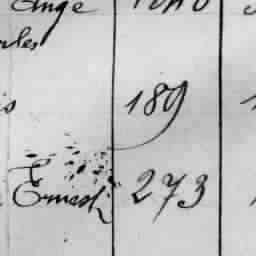 Ange
rles
is 189
Ernest 273